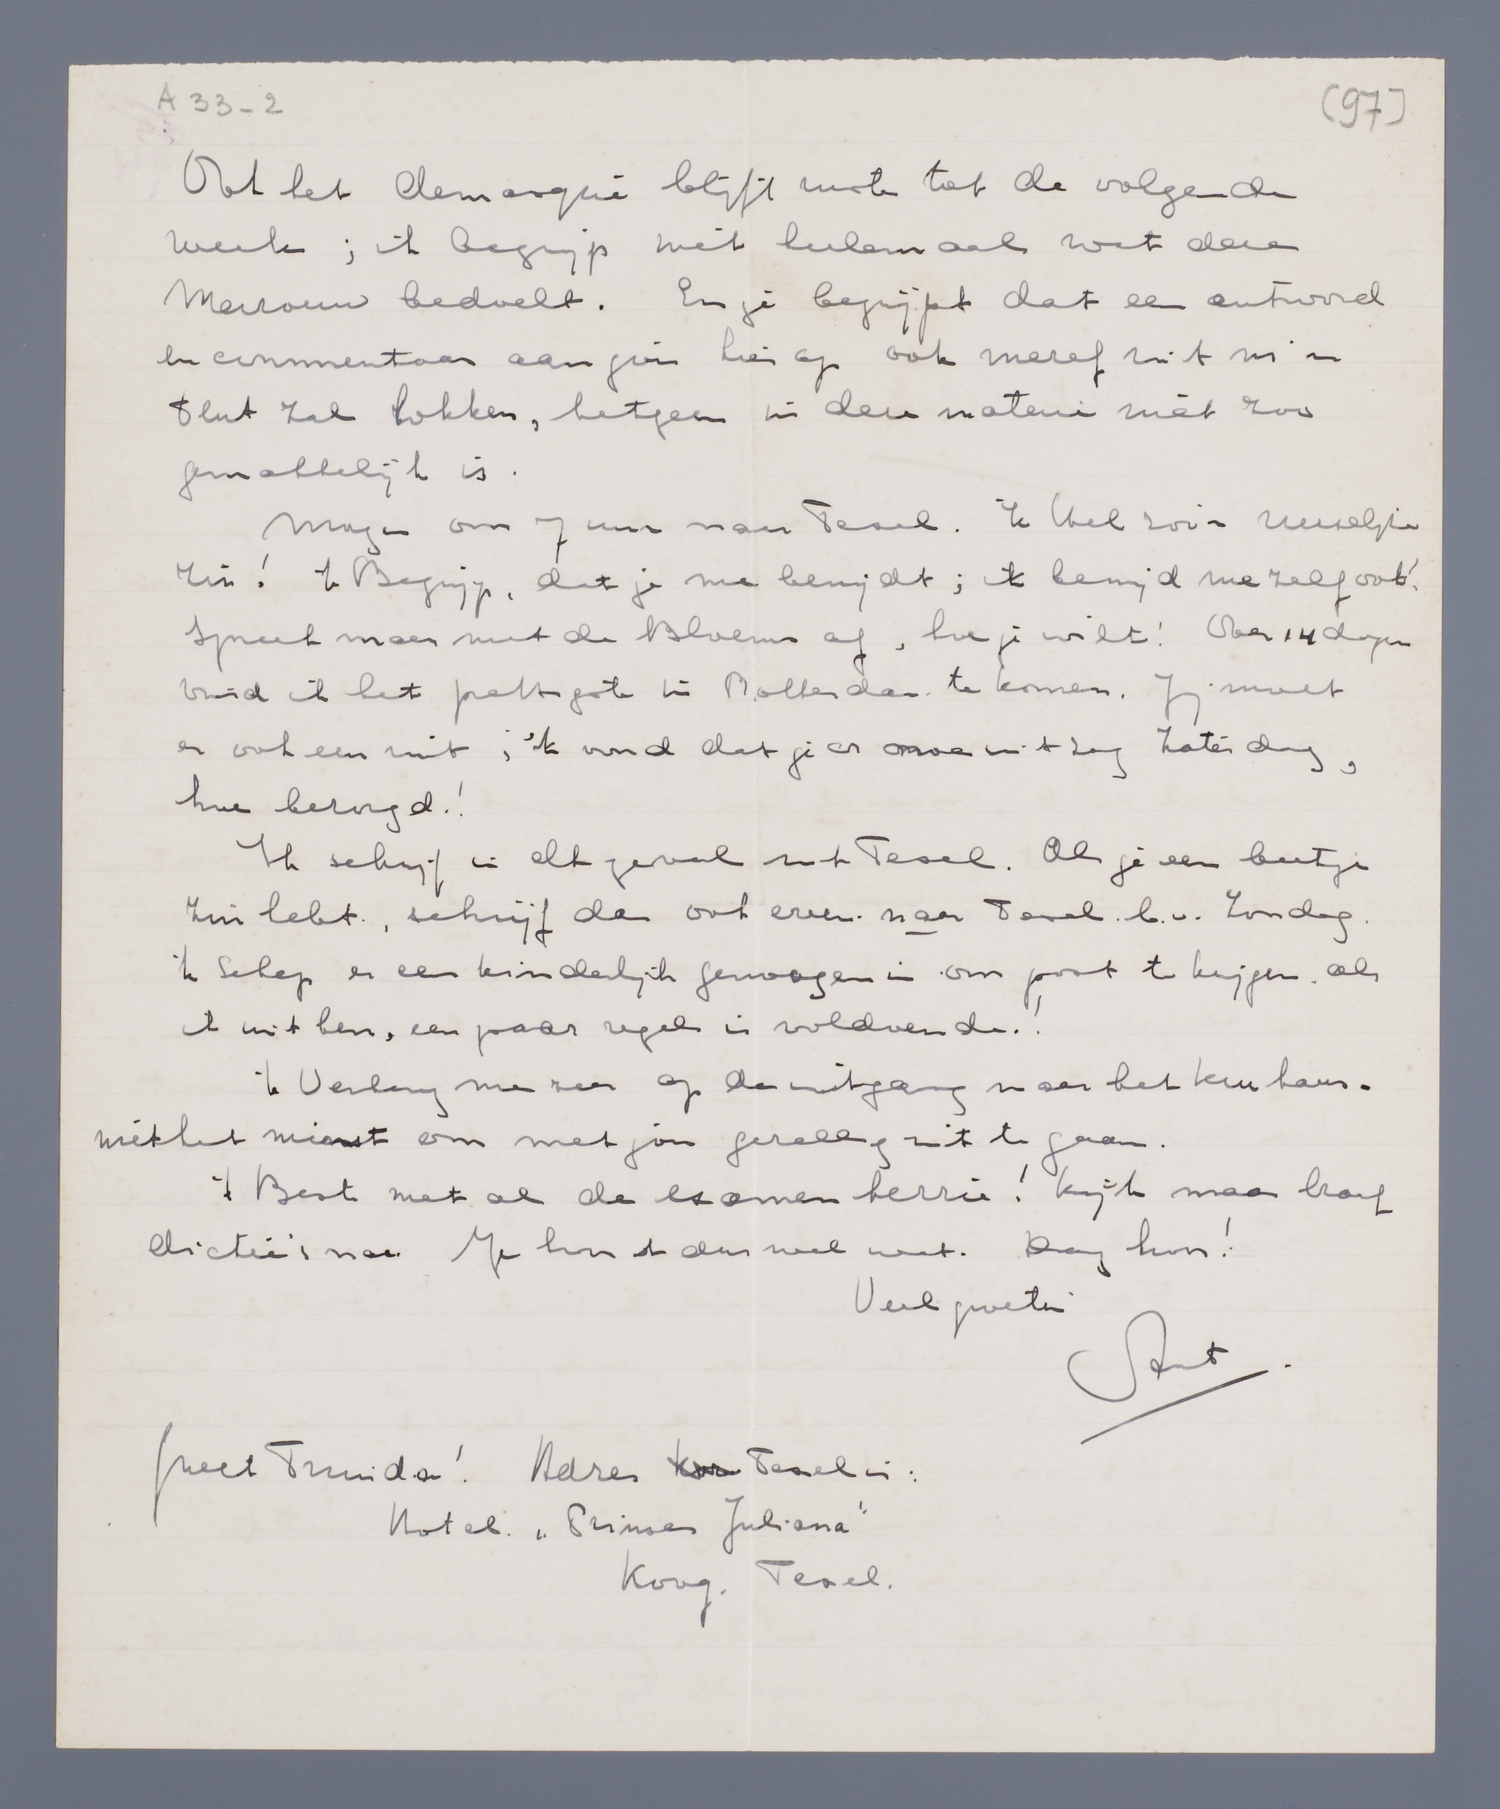 A 33-2
(97)
Ook het demarqué blijft rusten tot de volgende
week; ik begrijp niet heelemaal wat deze
Mevrouw bedoelt. En je begrijpt dat een antwoord
en commentaar aan jou hierop ook meraf uit m'n
zal lokken, hetgeen in deze materie niet zoo
gemakkelijk is.
Morgen om 7 uur naar Texel. Ik heb zoo'n vreeselijke
zin! Ik Begrijp, dat je me benijdt; ik benijd me zelf ook!
Spreek maar met de Bloeme af, hoe je wilt! Over 14 dagen
vind ik het prettigste in Rotterdam te komen. Jij moet
er ook een uit; 'k vond dat je er moe uit zag Zaterdag,
hoe bezorgd!
Ik schrijf in elk geval uit Texel. Als je een beetje
zin hebt, schrijf dan ook even naar Texel b.v. Zondag.
Ik Schep er een kinderlijk genoegen in om post te krijgen als
ik uit ben, een paar regels is voldoende!
Ik Verlang me zeer op de uitgang naar het
niet het minst om met jou gezellig uit te gaan.
't Beste met al de examen herrie! Kijk maar braaf
dictée's na. Je kunt dus wel wat. Dag hoor!
Veel groeten
Ant.
Groet Truida! Adres Texel is:
Hotel "Prinses Juliana"
Koog. Texel.